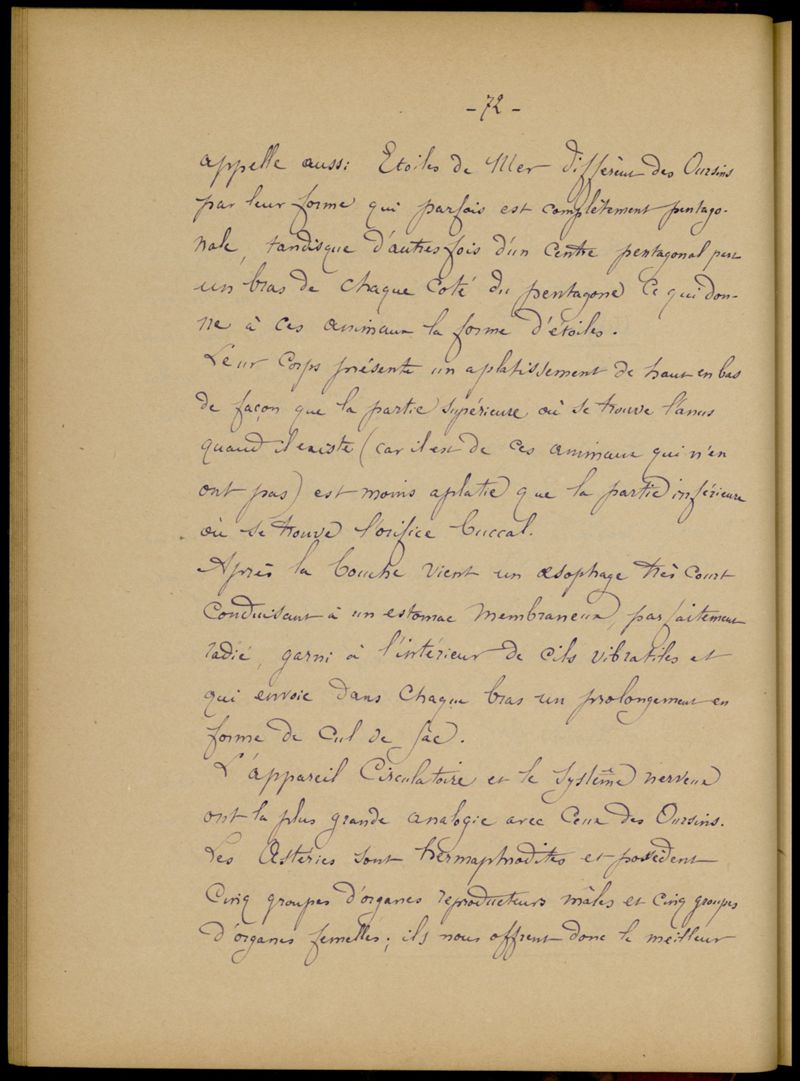 - 72 -
appelle aussi Etoiles de Mer diffèrent des Oursins
par leur forme qui parfois est complètement pentago-
nale, tandisque d'autres fois d'un centre pentagonal part
un bras de chaque coté du pentagone ce qui don-
ne à ces animaux la forme d'étoiles.
Leur corps présente un aplatissement de haut en bas
de façon que la partie supérieure où se trouve l'anus
quand il existe (car il est de ces animaux qui n'en
ont pas) est moins aplatie que la partie inférieure
où se trouve l'orifice buccal.
Après la bouche vient un œsophage très court
conduisant à un estomac membraneux, parfaitement
radié, garni à l'intérieur de cils vibratiles et
qui envoie dans chaque bras un prolongement en
forme de cul de sac.
L'appareil circulatoire et le système nerveux
ont la plus grande analogie avec ceux des Oursins.
Les Astéries sont hermaphrodites et possèdent
cinq groupes d'organes reproducteurs mâles et cinq groupes
d'organes femelles; ils nous offrent donc le meilleur